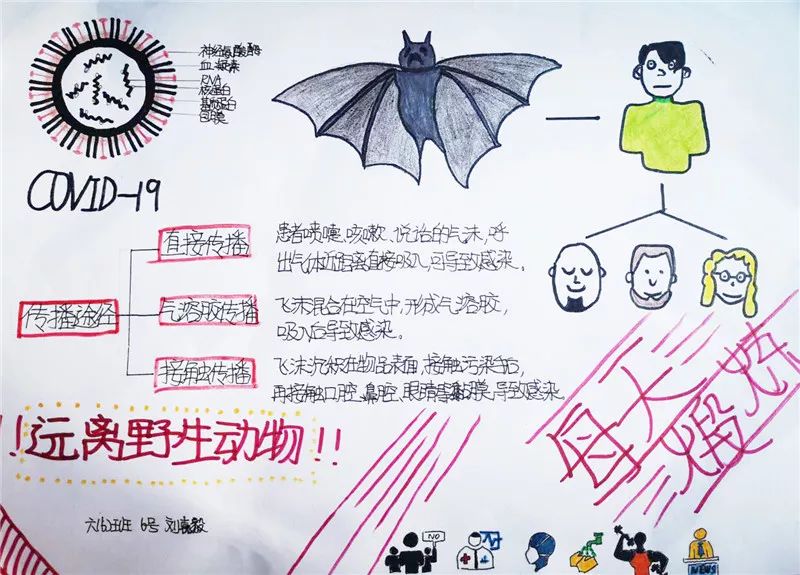 神经氨酸酶
血凝素
RNA
核蛋白
基质蛋白
包膜
COVID-19
传播途径
直接传播
患者喷嚏、咳嗽、说话的气沫,呼
出气体近距离直接吸入,可导致感染。
气溶胶传播
飞沫混合在空气中,形成气溶胶,
吸入后导致感染。
接触传播
飞沫沉积在物品表面,接触污染手后,
再接触口腔、鼻腔、眼睛等黏膜,导致感染。
!!远离野生动物!!
每天
煅炼
六(6)班 6号 刘
NO
NEWS